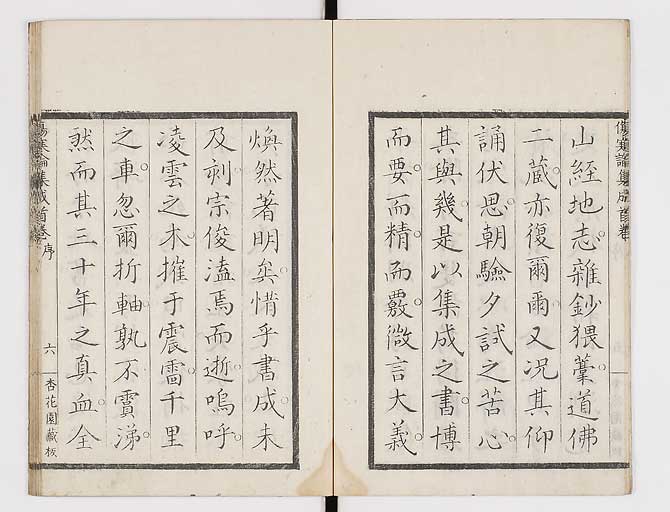 傷寒論集成 首卷
山經地志。雜鈔猥藁。道佛
二藏。亦復爾爾。又況其仰
誦伏思。朝驗夕試之苦心。
其與幾。是以集成之書。博
而要。而精而覈。微言大義。
煥然著明矣。惜乎書成。未
及剞。宗俊溘焉而逝。嗚呼
凌雲之木。摧于震雷。千里
之車。忽爾折軸。孰不霣涕。
然而其三十年之真血。全
傷寒論集成 首卷 序 六 杏花園藏板